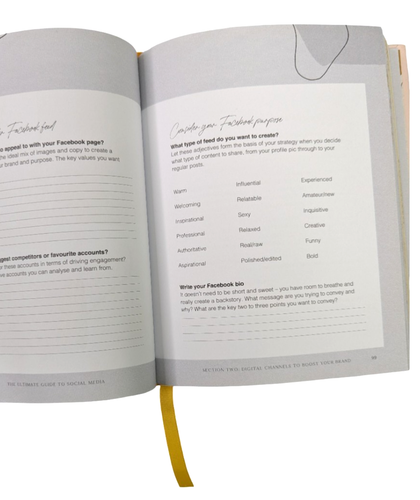 r Facebook feed
o appeal to with your Facebook page?
he ideal mix of images and copy to create a
r brand and purpose. The key values you want
ggest competitors or favourite accounts?
r these accounts in terms of driving engagement?
ve accounts you can analyse and learn from.
THE ULTIMATE GUIDE TO SOCIAL MEDIA
Consider your Facebook purpose
What type of feed do you want to create?
Let these adjectives form the basis of your strategy when you decide
what type of content to share, from your profile pic through to your
regular posts.
Warm Influential Experienced
Welcoming Relatable Amateur/new
Inspirational Sexy Inquisitive
Professional Relaxed Creative
Authoritative Real/raw Funny
Aspirational Polished/edited Bold
Write your Facebook bio
It doesn't need to be short and sweet – you have room to breathe and
really create a backstory. What message are you trying to convey and
why? What are the key two to three points you want to convey?
SECTION TWO: DIGITAL CHANNELS TO BOOST YOUR BRAND